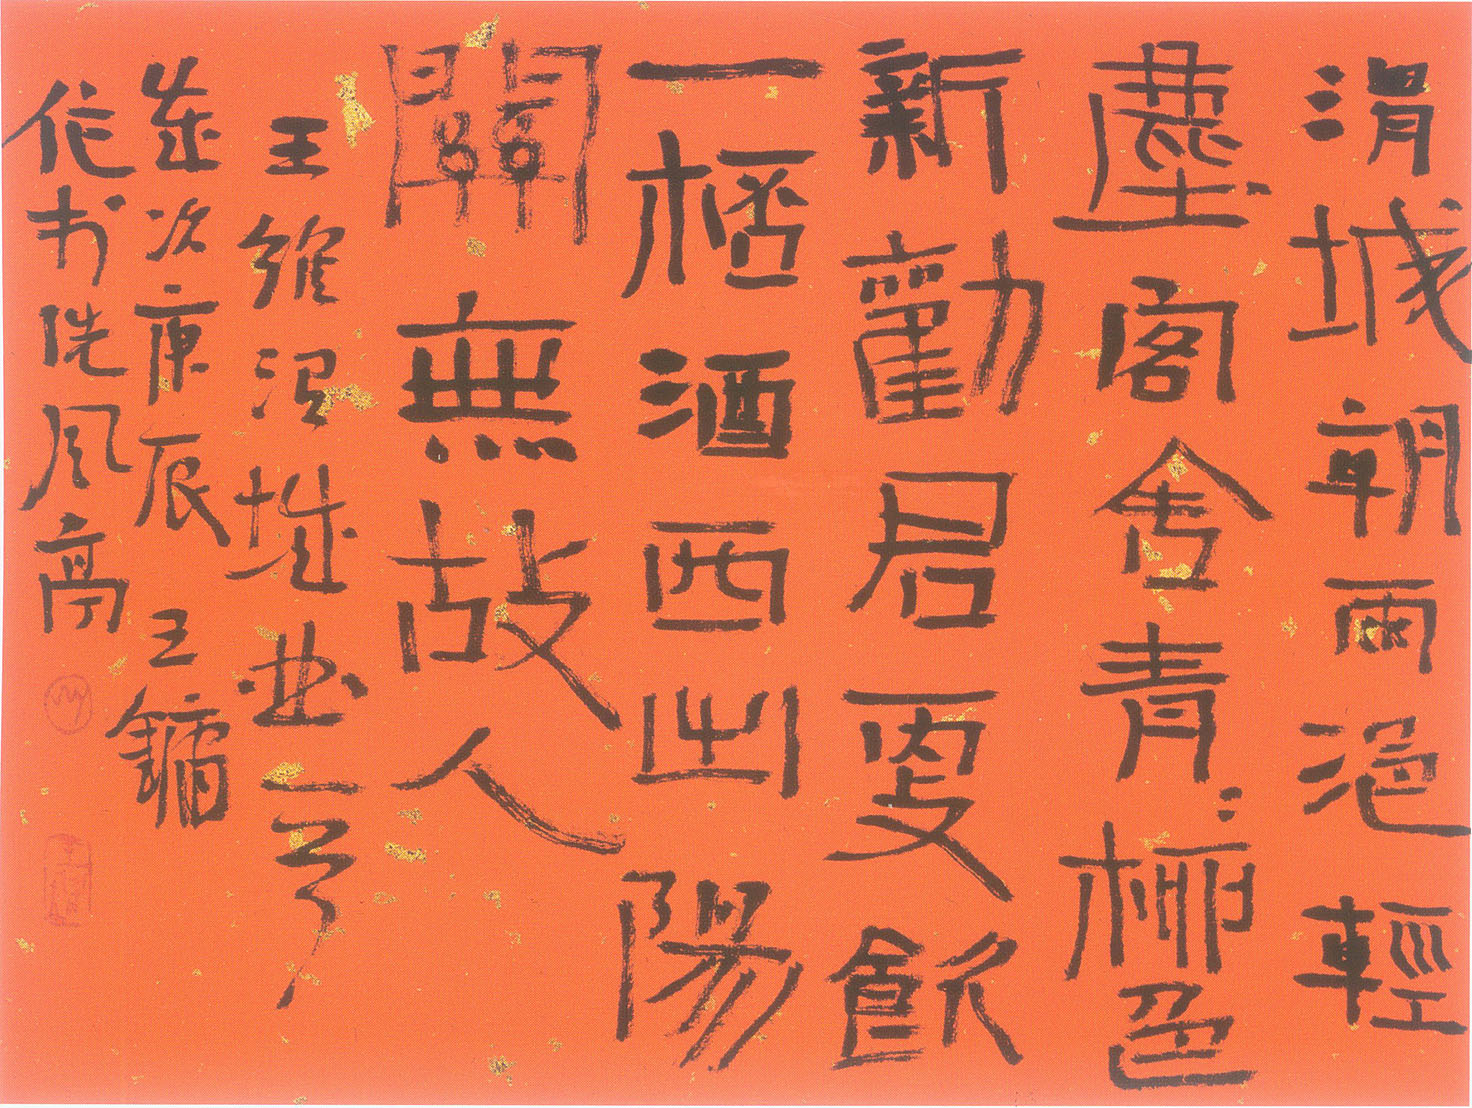 渭城朝雨浥輕
塵客舍青〻柳色
新勸君更飲
一桮酒西出陽
關無故人
王維渭城曲一首
歲次庚辰王鏞
作於風亭